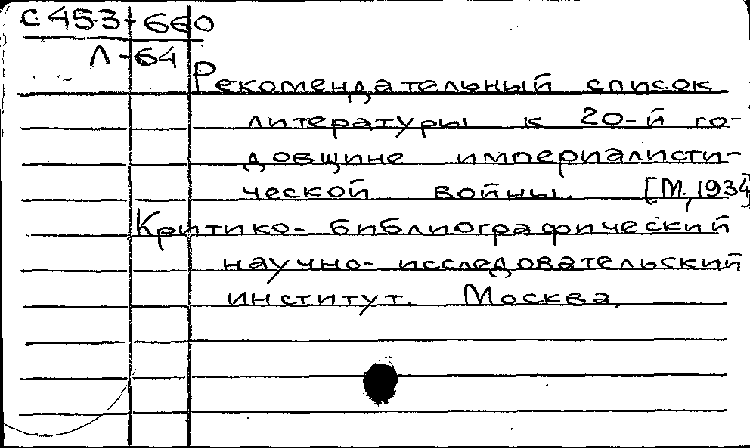 С453+660
Л-64
Рекомендательный список
литературы к 20-й го-
довщине империалисти-
ческой войны. [М, 1934]
Критико-библиографический
научно-исследовательский
институт. Москва.